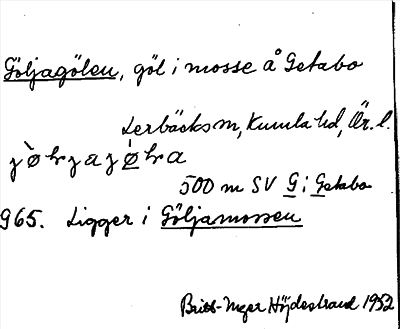 Göljagölen, göl i mosse å Getabo
Lerbäcks m, Kumla hd, Ör. l.
500 m SV G i Getabo
965. Ligger i Göljamossen
Britt-Inger Höjdestrand 1952